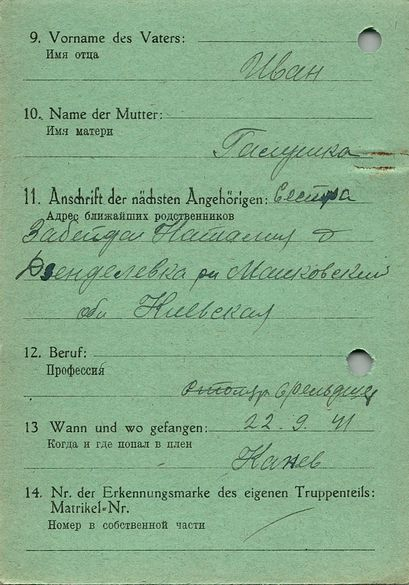 9. Vorname des Vaters:
Имя отца
Иван
10. Name der Mutter:
Имя матери
Галушка
11. Anschrift der nächsten Angehörigen: Сестра
Адрес ближайших родственников
Забейдал Наталия д
рн Маньковский
обл Киевская
12. Beruf:
Профессия
фельдшер
13 Wann und wo gefangen: 22. 9. 41
Когда и где попал в плен
Канев
14. Nr. der Erkennungsmarke des eigenen Truppenteils:
Matrikel-Nr.
Номер в собственной части